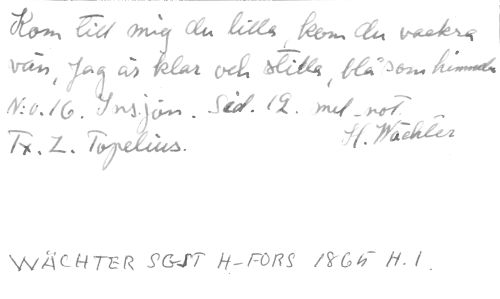 Kom till mig du lilla, kom du vackra
vän, Jag är klar och stilla, blå som himmeln
N:o. 16. Insjön. Sid. 12. mel-not.
H. Wächter
Tx. Z. Topelius.
WÄCHTER SGST H-FORS 1865 H.1.